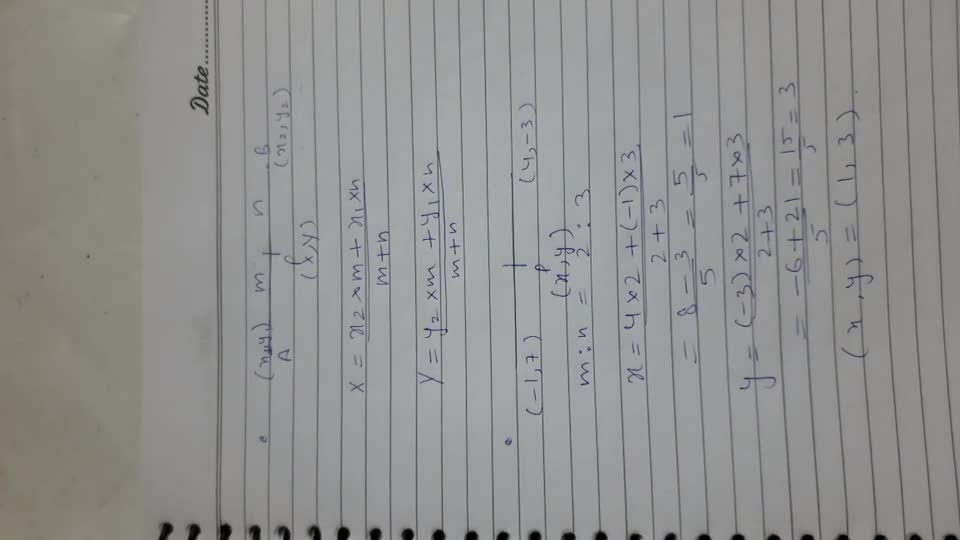 Date
(x₁,y₁) m n B
A P (x₂,y₂)
(x,y)
x = x₂ × m + x₁ × n
m+n
y = y₂ × m + y₁ × n
m+n
(-1,7) P (4,-3)
(x,y)
m:n = 2:3
x = 4×2 + (-1)×3
2+3
= 8-3 = 5 = 1
5 5
y = (-3)×2 + 7×3
2+3
= -6+21 = 15 = 3
5 5
(x,y) = (1,3).